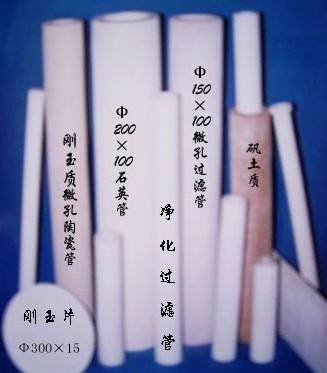 刚玉质微孔陶瓷管
Φ200×100石英管
净化过滤管
Φ150×100微孔过滤管
矾土质
刚玉片
Φ300×15